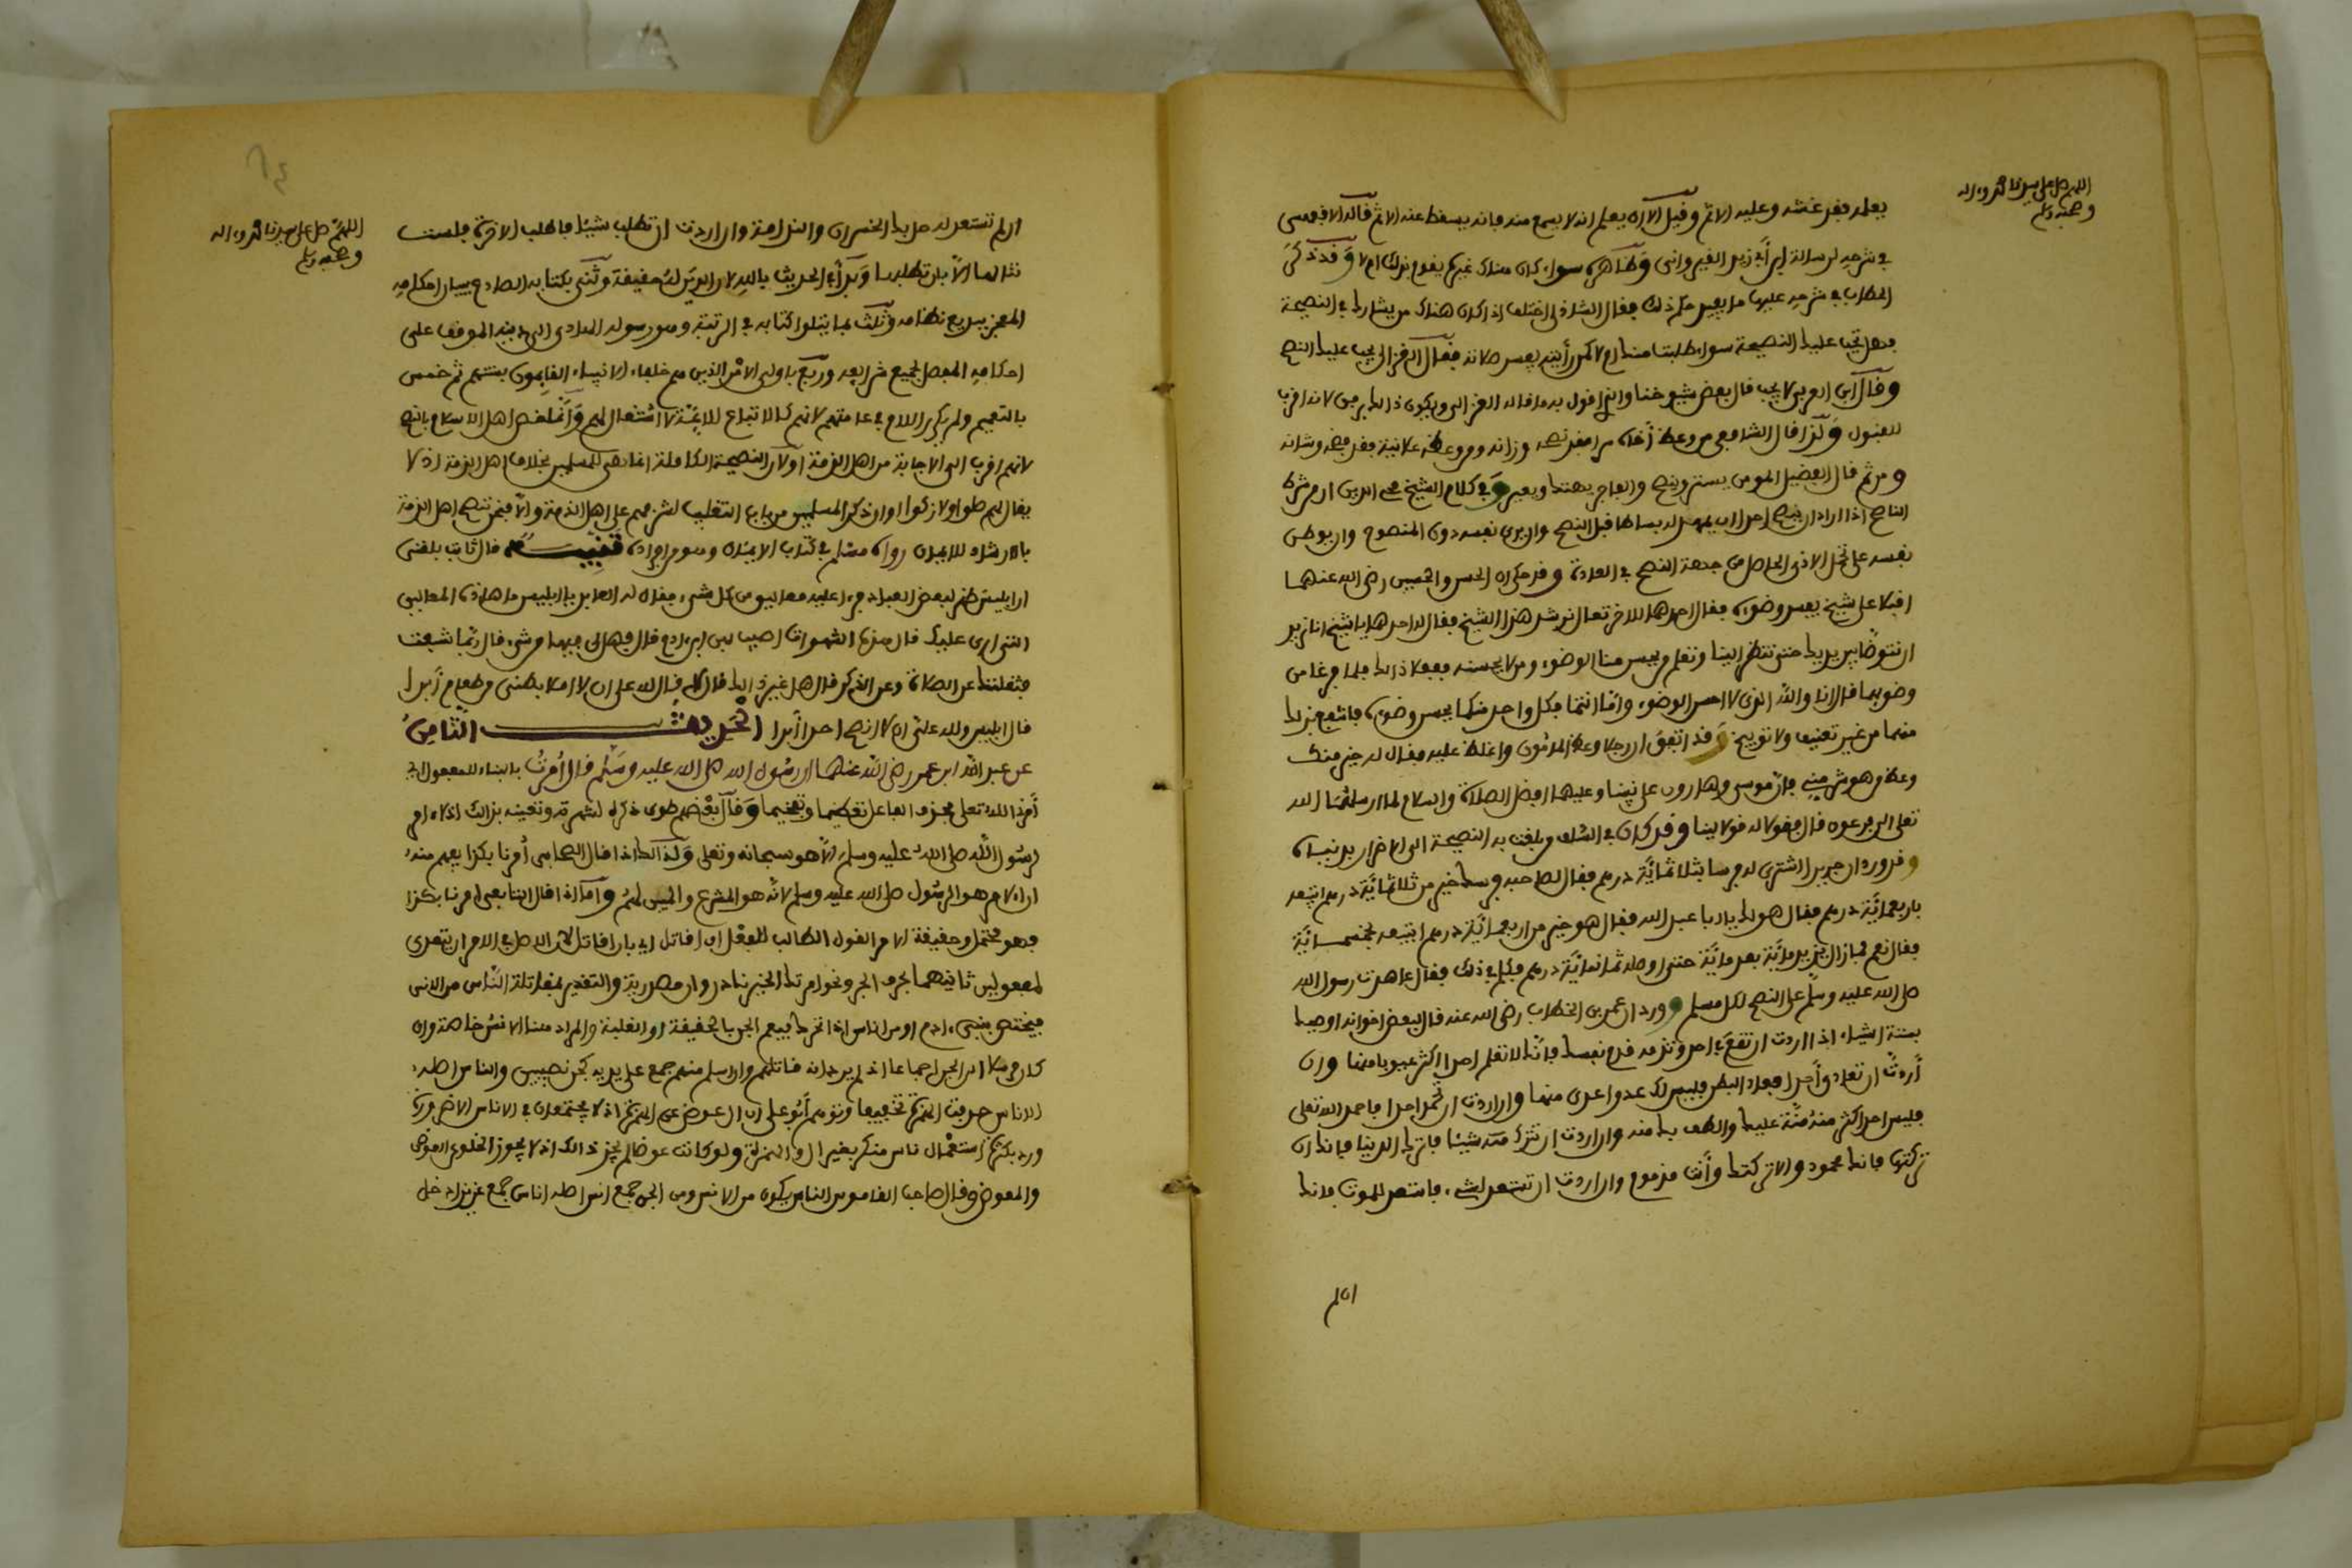 اللهم صل على سيدنا محمد وءاله
وصحبه وسلم
يعلم فقد غشه وعليه الاثم وقيل الا ان يعلم انه لا يسمع منه فانه يسقط عنه الاثم قاله الاقفهسي
في شرحه لرسالة ابن أبي زيد القيرواني وظاهره سواء كان هناك غيره يقوم بذلك ام لا وقد ذكر
الحطاب في شرحه عليها ما يفيد حكم ذلك فقال الشاذلي اختلف اذا كان هناك من يشارك في النصيحة
فهل تجب عليك النصيحة سواء طلبت منك ام لا كمن رأيته يفسد صلاته فقال الغزالي يجب عليك النصح
وقال ابن العربي لا يجب قال بعض شيوخنا والذي اقول به ما قاله الغزالي ويكون ذالك برفق لانه اقرب
للقبول ولذا قال الشافعي من وعظ أخاه سرا فقد نصحه وزانه ومن وعظه علانية فقد فضحه وشانه
ومن ثم قال الفضيل المومن يستر وينصح والفاجر يهتك ويعير وفي كلام الشيخ محي الدين ان من شرط
الناصح اذا اراد ان ينصح احدا ان يمهد له بساطا قبل النصح وان يرى نفسه دون المنصوح وان يوطن
نفسه على تحمل الاذى الحاصل من جهة النصح في العادة وقد حكى ان الحسن والحسين رضي الله عنهما
اقبلا على شيخ يفسد وضوءه فقال احدهما للاخر تعال نرشد هذا الشيخ فقال له احدهما يا شيخ انا نريد
ان نتوضأ بين يديك حتى تنظر الينا وتعلم من يحسن منا الوضوء ومن لا يحسنه ففعلا ذالك فلما فرغا من
وضوءهما قال انا والله الذي لا احسن الوضوء واما انتما فكل واحد منكما يحسن وضوءه فانتفع بذلك
منهما من غير تعنيف ولا توبيخ وقد اتفق ان رجلا وعظ المامون واغلظ عليه فقال له خير منك
وعظ من هو شر مني فان موسى وهارون على نبينا وعليهما افضل الصلاة والسلام لما ارسلهما الله
تعلى الى فرعون قال فقولا له قولا لينا وقد كان في السلف من بلغت به النصيحة الى الاضرار بدنياه
وقد ورد ان جرير اشترى له فرسا بثلاثمائة درهم فقال لصاحبه فرسك خير من ثلاثمائة درهم اتبيعه
باربعمائة درهم فقال هو لك يا ابا عبد الله فقال هو خير من اربعمائة درهم اتبيعه بخمسمائة
فقال نعم فما زال يزيد مائة بعد مائة حتى اوصله ثمانمائة درهم فكلم في ذلك فقال عاهدت رسول الله
صلى الله عليه وسلم على النصح لكل مسلم وورد ان عمر بن الخطاب رضي الله عنه قال لبعض اخوانه اوصيك
بستة اشياء اذا اردت ان تقع في احد وتذمه فذم نفسك فانك لا تعلم احدا اكثر عيوبا منها وان
أردت ان تعادي أحدا فعاد البطن فليس لك عدوا اعدى منها وان اردت ان تحمد احدا فاحمد الله تعلى
فليس احد اكثر منه منة عليك والطف بك منه وان اردت ان تترك شيئا فاترك الدنيا فانك ان
تركتها فانك محمود والا تركتك وأنت مذموم وان اردت ان تستعد لشيء فاستعد للموت فانك
ان لم
اللهم صل على سيدنا محمد وءاله
وصحبه وسلم
ان لم تستعد له حل بك الخسران والندامة وان اردت ان تطلب شيئا فاطلب الاخرة فلست
تنالها الا بان تطلبها وبدأ في الحديث بالله لان الدين له حقيقة وثنى بكتابه الصادع ببيان احكامه
المعجز ببديع نظامه وثلث بما يتلو كتابه في الرتبة وهو رسوله الهادي الى دينه الموقف على
احكامه المفصل لجميع شرايعه وربع باولي الامر الذين هم خلفاء الانبياء القايمون بسنتهم ثم خمس
بالتعميم ولم يكرر اللام في عامتهم لانهم كالاتباع للايمة لا استقلال لهم وانما خص اهل الاسلام بالنصح
لانهم اقرب الى الاجابة من اهل الذمة او لان النصيحة الكاملة انما هي للمسلمين بخلاف اهل الذمة اذ لا
يقال لهم صلوا ولا زكوا او ان ذكر المسلمين من باب التغليب لشرفهم على اهل الذمة والا فنحن ننصح اهل الذمة
بالارشاد للايمان رواه مسلم في كتاب الايمان وهو من افراده تنبيه قال ثابت بلغني
ان ابليس ظهر لبعض العباد فرءا عليه معاليق من كل شيء فقال له العابد يا ابليس ما هاذه المعاليق
التي ارى عليك قال هذه الشهوات اصيب بها ابن ادم قال فهل لي فيها من شيء قال ربما شبعت
فثقلتك عن الصلاة وعن الذكر قال هل غير ذالك قال لا قال لله علي ان لا املا بطني من طعام أبدا
قال ابليس ولله علي ان لا انصح احدا أبدا الحديث الثامن
عن عبد الله ابن عمر رضي الله عنهما ان رسول الله صلى الله عليه وسلم قال أمرت بالبناء للمفعول اي
أمرني الله تعلى فحذف الفاعل تعظيما وتفخيما وقال بعضهم طوى ذكره لشهرته وتعينه بذالك اذ لا ءامر
لرسول الله صلى الله عليه وسلم الا هو سبحانه وتعلى وكذالك اذا قال الصحابي أمرنا بكذا يفهم منه
ان الامر هو الرسول صلى الله عليه وسلم لانه هو المشرع والمبين لهم واما اذا قال التابعي امرنا بكذا
فهو محتمل وحقيقة الامر القول الطالب للفعل ان اقاتل اي بان اقاتل لان الاصل في الامر ان يتعدى
لمفعولين ثانيهما بحرف الجر ونحو امرتك الخير نادر وان مصدرية والتقدير بمقاتلة الناس من الانس
فيختص ببني ءادم او من اناس اذا تحرك فيعم الجن بالحقيقة او الغلبة والمراد هنا الانس خاصة وان
كان مرسلا الى الجن اجماعا اذ لم يرد انه قاتلهم وان اسلم منهم جمع على يديه كجن نصيبين والناس اصله
اناس حذفت الهمزة تخفيفا وتوهم أبو علي ان ال عوض عن الهمزة اذ لا يجتمعان في الاناس الا ضرورة
ورد بكثرة استعمال ناس منكر بغير ال والهمزة ولو كانت عوضا لم يجز ذالك اذ لا يجوز الخلو عن العوض
والمعوض وقال صاحب القاموس الناس يكون من الانس ومن الجن جمع انس اصله اناس جمع عزيز ادخل